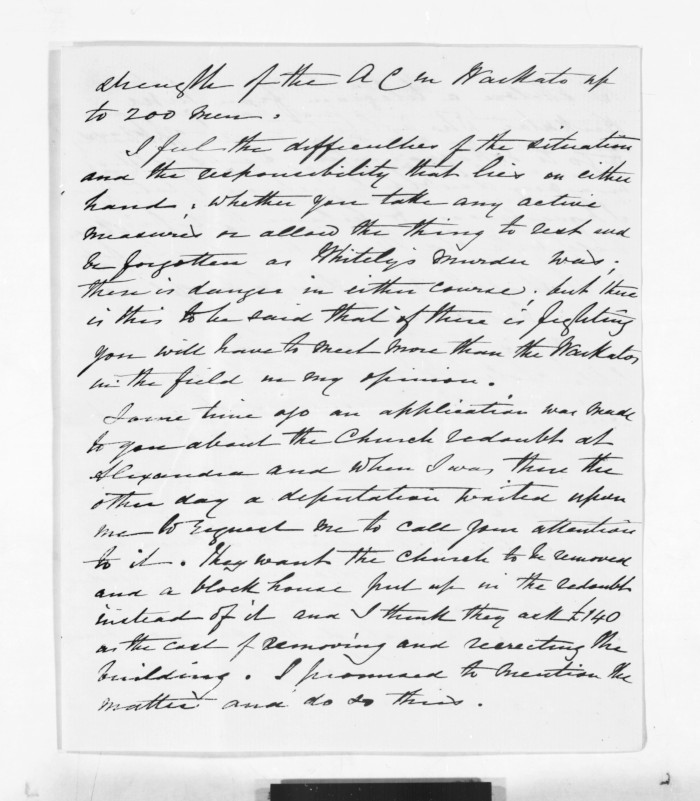 strength of the A C in Waikato up
to 200 men.
I feel the difficulties of the situation
and the responsibility that lies on either
hand; whether you take any active
measures or allow the thing to rest and
be forgotten as Whitely's murder was;
there is danger in either course; but there
is this to be said that if there is fighting
you will have to meet more than the Waikatos
in the field in my opinion.
Some time ago an application was made
to you about the Church redoubt at
Alexandra and when I was there the
other day a deputation waited upon
me to request me to call your attention
to it. They want the church to be removed
and a block house put up in the redoubt
instead of it and I think they ask £140
as the cost of removing and reerecting the
building. I promised to mention the
matter and do so thus.